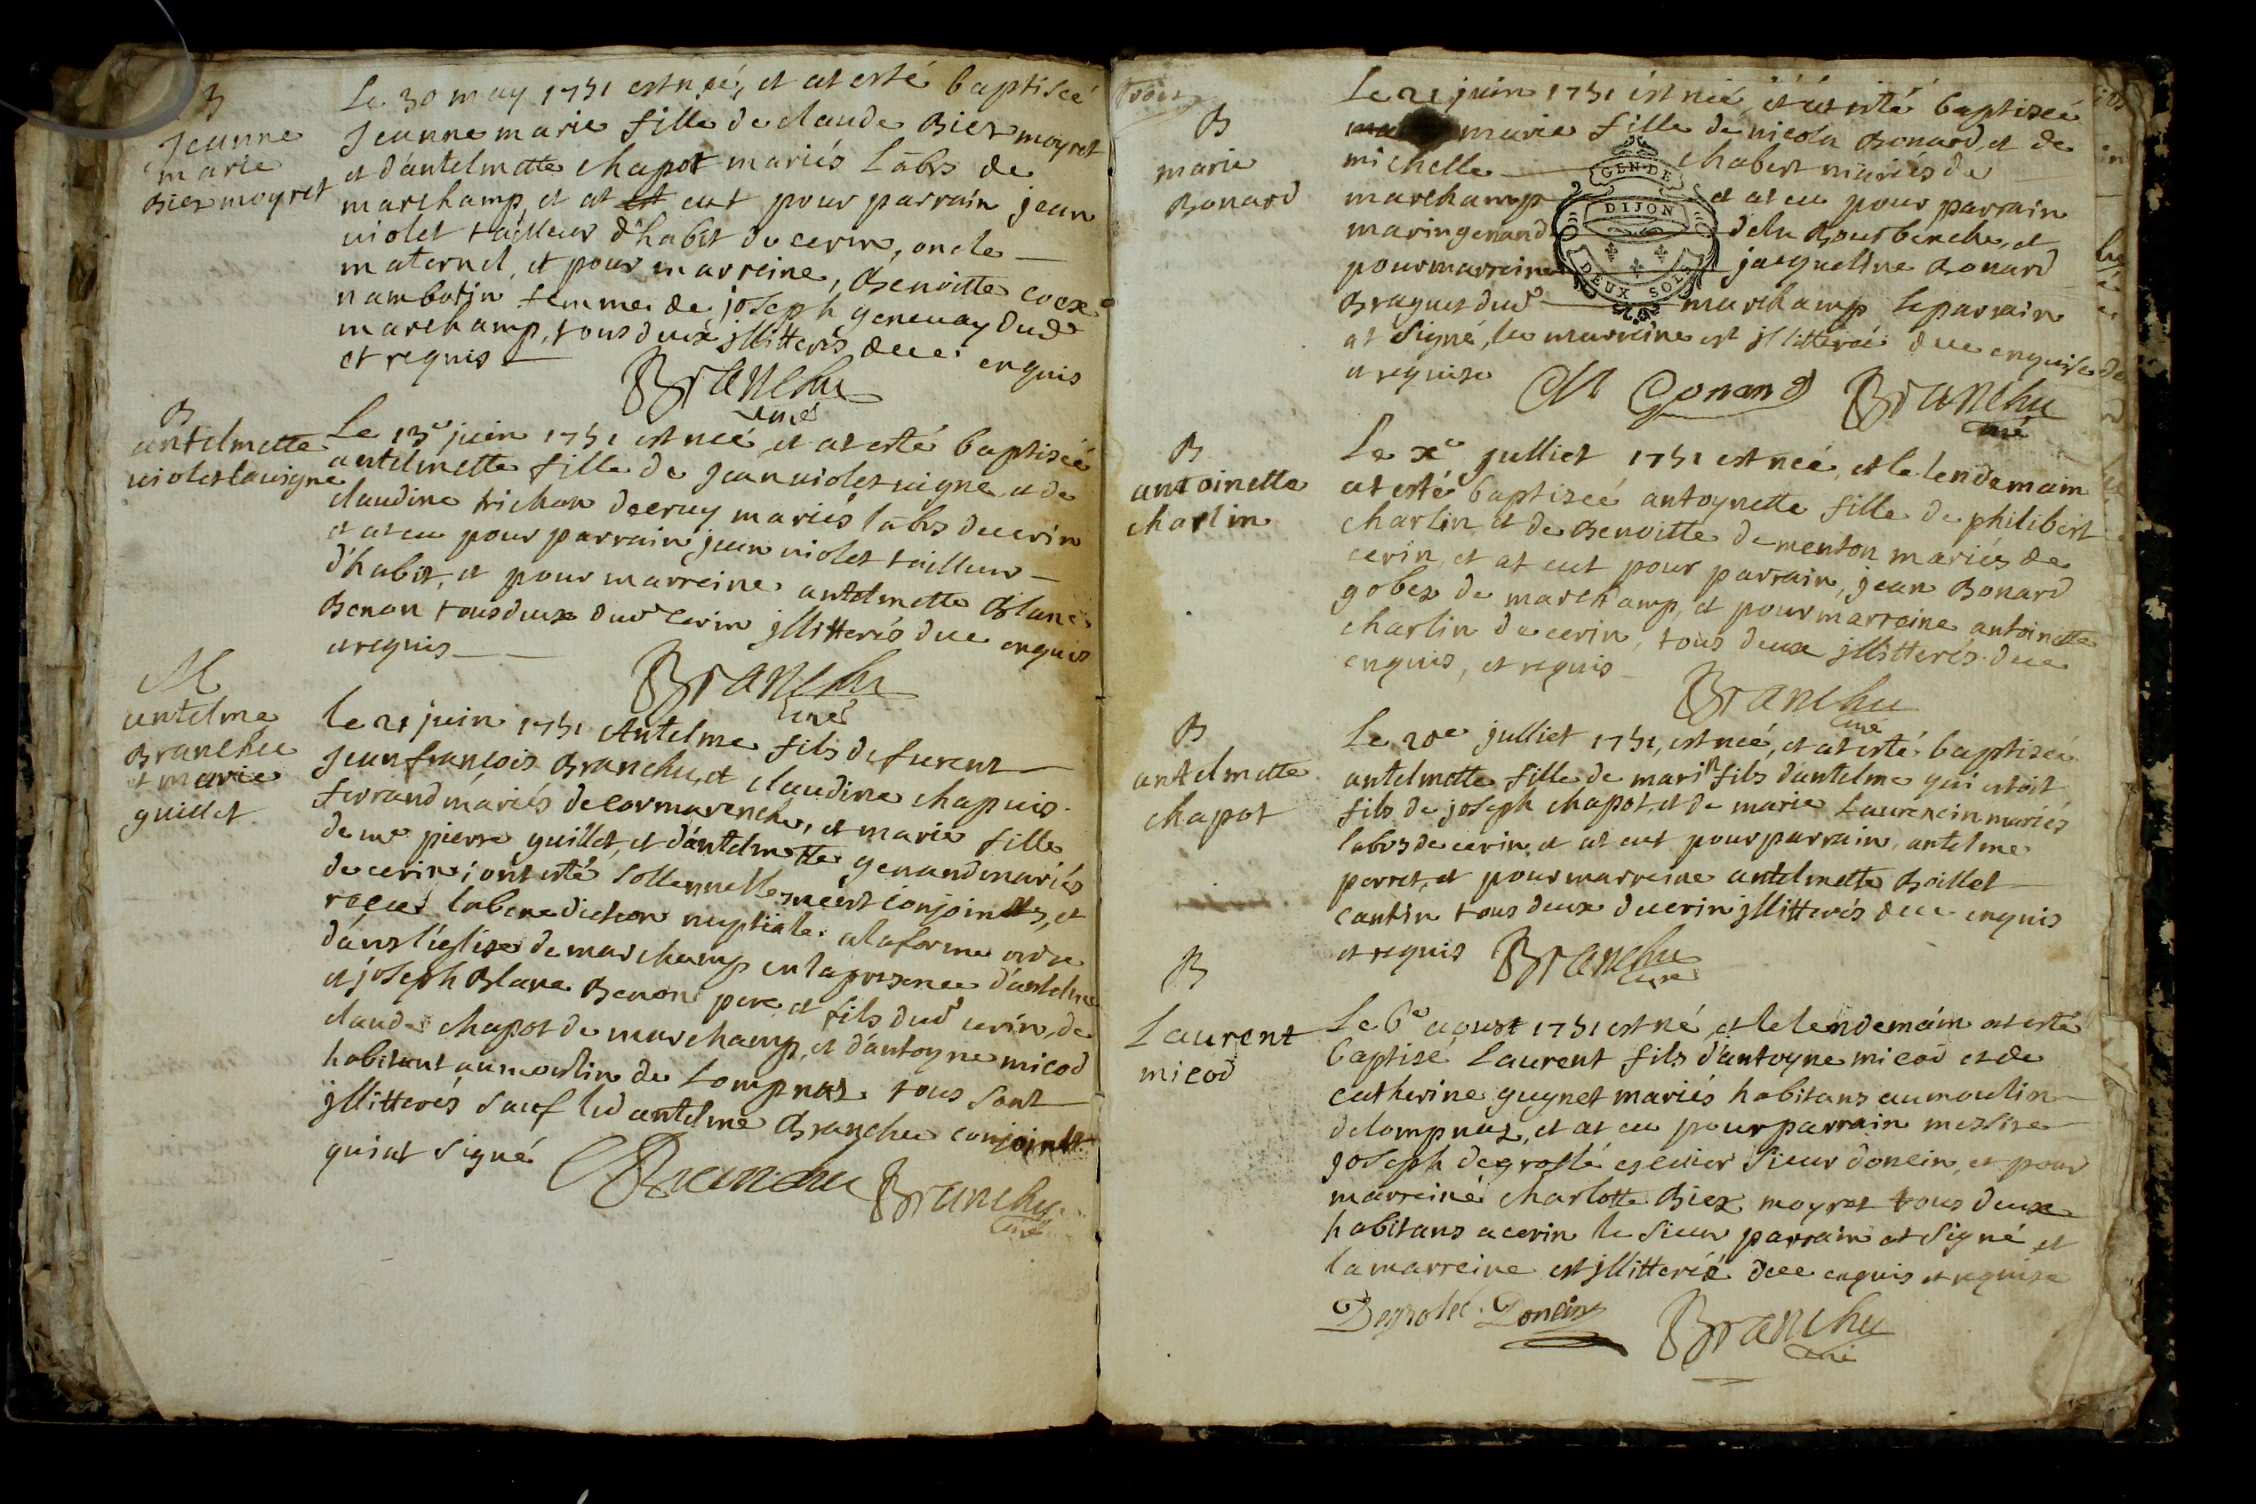 B
Jeanne
marie
Biez moyret
Le 30 may 1751 est neé, et at esté baptiseé
Jeanne marie fille de claude Biez moyret
et d'antelmette chapot mariés labrs de
marchamp, et at eut pour parrain jean
violet tailleur d'habit de cerin, oncle
maternel, et pour marreine, Benoitte
nambotin femme de joseph genevay dud
marchamp, tous deux jllitterés deee enquis
et requis
Branchu
curé
B
antelmette
violet lavigne
Le 13e juin 1751 est neé, et at esté baptiseé
antelmette fille de jean violet vigne et de
claudine trichon decruy mariés labrs de cerin
et at eu pour parrain jean violet tailleur
d'habit, et pour marreine antelmette Blanc
Benon tous deux dud cerin jllitterés dee enquis
et requis
Branchu
curé
M
antelme
Branchu
et marie
guillet
le 21 juin 1751 Antelme fils de furent
Jean francois Branchu, et claudine chapuis
ferrand mariés de Cormarenche, et marie fille
de me pierre guillet, et d'antelmette genand mariés
de cerin; ont esté sollennellement conjoincts, et
receu la benediction nuptiale a la forme ordre
dans l'eglise de marchamp en la presence d'antelme
et joseph Blanc Benon pere, et fils dud cerin, de
claude chapot de marchamp, et d'antoyne micod
habitant au moulin de Lompnaz tous sont
jllitterés sauf led antelme Branchu conjoinct
qui at signé
ABranchu Branchu
curé
trois
B
marie
Bonard
Le 21 juin 1751 est neé, et at esté baptiseé
marie fille de nicola Bonard, et de
michelle chabert mariés de
marchamp et at eu pour parrain
marin genand dela Bourbenche, et
pour marreine jacqueline Bonard
Braguet dud marchamp le parrain
at signé, la marreine est jllittereé deee enquise
et requise
GEN. DE
DIJON
DEUX SOLS
M Gonand Branchu
curé
B
antoinette
charlin
Le xe julliet 1751 est neé, et le lendemain
at esté baptiseé antoynette fille de philibert
charlin et de Benoitte dementon mariés de
cerin, et at eut pour parrain, jean Bonard
gobez de marchamp, et pour marreine antoinette
charlin de cerin, tous deux jllitterés deee
enquis, et requis
Branchu
curé
B
antelmette
chapot
Le 20e julliet 1751, est neé, et at esté baptiseé
antelmette fille de marin fils d'antelme qui estoit
fils de joseph chapot, et de marie Laurencin mariés
labrs de cerin et at eut pour parrain, antelme
perret, et pour marreine antelmette Baillet
cantin tous deux de cerin jllitterés deee enquis
et requis Branchu
curé
B
Laurent
micod
Le 6e aoust 1751 est né, et le lendemain at esté
baptisé Laurent fils d'antoyne micod et de
catherine guynet mariés habitans au moulin
de lompnaz, et at eu pour parrain messire
joseph degroslé escuier sieur doncin, et pour
marreine charlotte Biez moyret tous deux
habitans a cerin le sieur parrain at signé et
la marreine est jllittereé deee enquis et requise
Degrolée. Doncin Branchu
curé